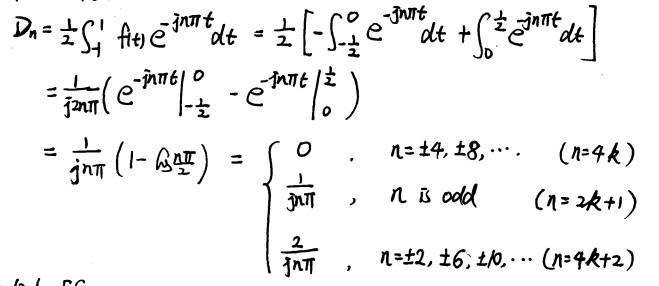 Dn = 1/2 ∫_{-1}^{1} f(t) e^{-jnπt} dt = 1/2 [ -∫_{-1/2}^{0} e^{-jnπt} dt + ∫_{0}^{1/2} e^{-jnπt} dt ]
= 1/(j2nπ) ( e^{-jnπt} |_{-1/2}^{0} - e^{-jnπt} |_{0}^{1/2} )
= 1/(jnπ) ( 1 - cos nπ/2 ) = { 0 , n = ±4, ±8, ···. (n=4k)
1/(jnπ) , n is odd (n=2k+1)
2/(jnπ) , n = ±2, ±6, ±10, ··· (n=4k+2)